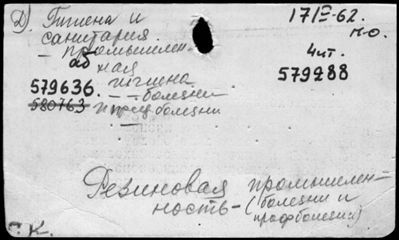 Д) Гигиена и
санитария.
– промышлен-
ная
гигиена
– – болезни
и проф болезни
17/II-62.
м-о.
4ит.
579988
аб
579636.
580763
Резиновая промышлен-
ность – (болезни и
профболезни)
С.К.